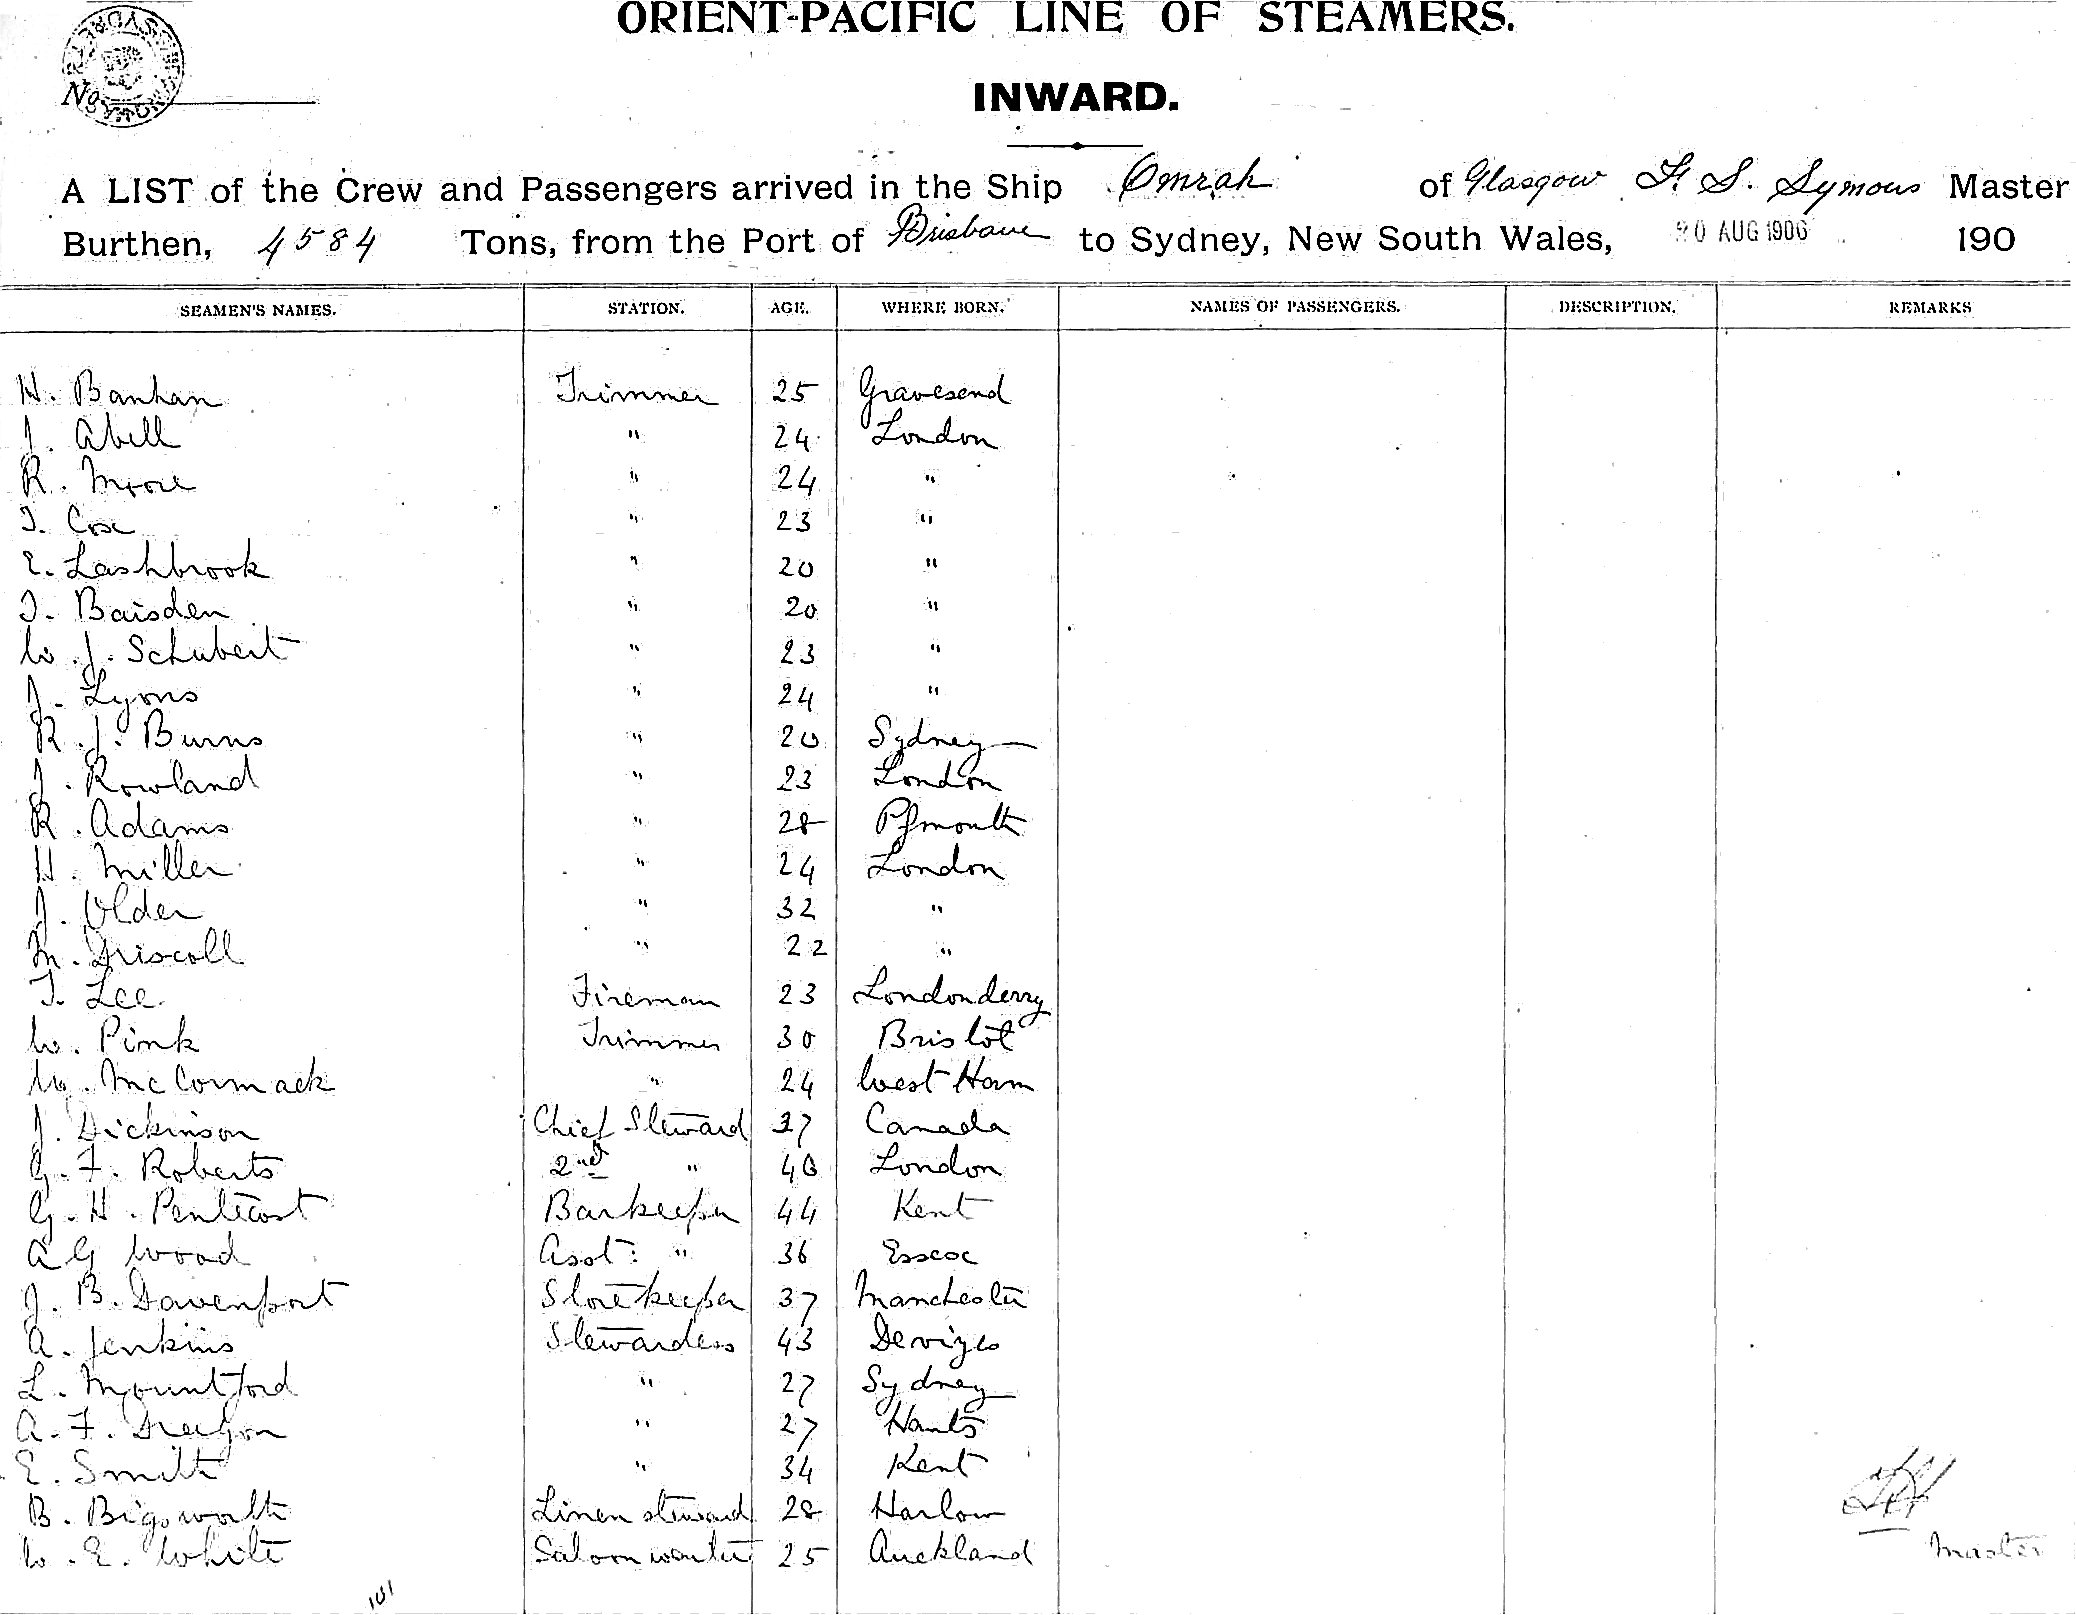 ORIENT-PACIFIC LINE OF STEAMERS.
No.
INWARD.
A LIST of the Crew and Passengers arrived in the Ship Omrah of Glasgow F. S. Symons Master
Burthen, 4584 Tons, from the Port of Brisbane to Sydney, New South Wales, 20 AUG 1906 190
SEAMEN'S NAMES. STATION. AGE. WHERE BORN. NAMES OF PASSENGERS. DESCRIPTION. REMARKS
H. Banhan Trimmer 25 Gravesend
J. Abell " 24 London
R. Moore " 24 "
T. Cox " 23 "
E. Lashbrook " 20 "
T. Baisden " 20 "
W. J. Schubert " 23 "
J. Lyons " 24 "
R. J. Burns " 20 Sydney
J. Rowland " 23 London
R. Adams " 28 Plymouth
H. Miller " 24 London
J. Older " 32 "
M. Driscoll " 22 "
T. Lee Fireman 23 Londonderry
W. Pink Trimmer 30 Bristol
W. McCormack " 24 West Ham
J. Dickinson Chief Steward 37 Canada
G. F. Roberts 2nd " London
G. H. Pentecost Barkeeper 44 Kent
A G Wood Asst: " 36 Essex
J. B. Davenport Storekeeper 37 Manchester
A. Jenkins Stewardess 43 Devizes
L. Mountford " 27 Sydney
A. F. " 27 Hants
E. Smith " 34 Kent
B. Bigsworth Linen steward 28 Harlow
W. E. White Saloon waiter 25 Auckland
Master
101